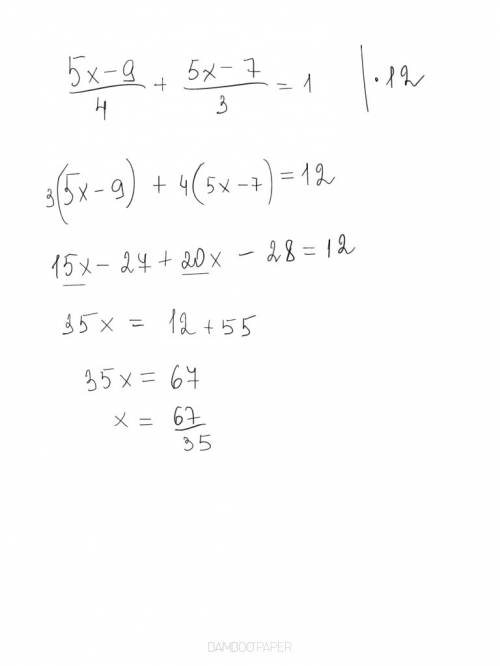 (5x-9)/4 + (5x-7)/3 = 1 | · 12
3(5x-9) + 4(5x-7) = 12
15x - 27 + 20x - 28 = 12
35x = 12 + 55
35x = 67
x = 67/35
BAMBOOPAPER